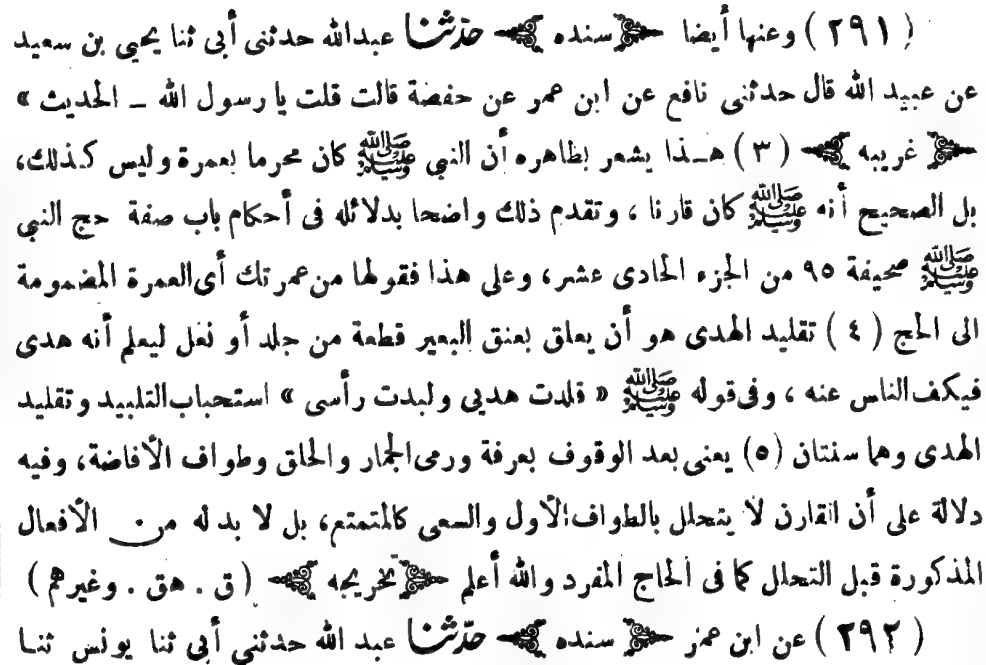 ( ٢٩١ ) وعنها أيضا ﴿ سنده ﴾ حدّثنا عبدالله حدثنى أبى ثنا يحيى بن سعيد
عن عبيد الله قال حدثنى نافع عن ابن عمر عن حفصة قالت قلت يا رسول الله ــ الحديث »
﴿ غريبه ﴾ ( ٣ ) هــذا يشعر بظاهره أن النبى ﷺ كان محرما بعمرة وليس كـذلك،
بل الصحيح أنه ﷺ كان قارنا ، وتقدم ذلك واضحا بدلائله فى أحكام باب صفة حج النبي
ﷺ صحيفة ٩٥ من الجزء الحادى عشر، وعلى هذا فقولها من عمرتك أى العمرة المضمومة
الى الحج ( ٤ ) تقليد الهدى هو أن يعلق بعنق البعير قطعة من جلد أو نعل ليعلم أنه هدى
فيكف الناس عنه ، وفى قوله ﷺ « قلدت هديى ولبدت رأسى » استحباب التلبيد وتقليد
الهدى وهما سنتان (٥) يعنى بعد الوقوف بعرفة ورمى الجمار والحلق وطواف الأفاضة، وفيه
دلالة على أن القارن لا يتحلل بالطواف الأول والسعى كالمتمتع، بل لا بد له من الأفعال
المذكورة قبل التحلل كما فى الحاج المفرد والله أعلم ﴿ تخريجه ﴾ ( ق . هق . وغيرهم )
( ٢٩٢ ) عن ابن عمر ﴿ سنده ﴾ حدّثنا عبد الله حدثنى أبى ثنا يونس ثنـا